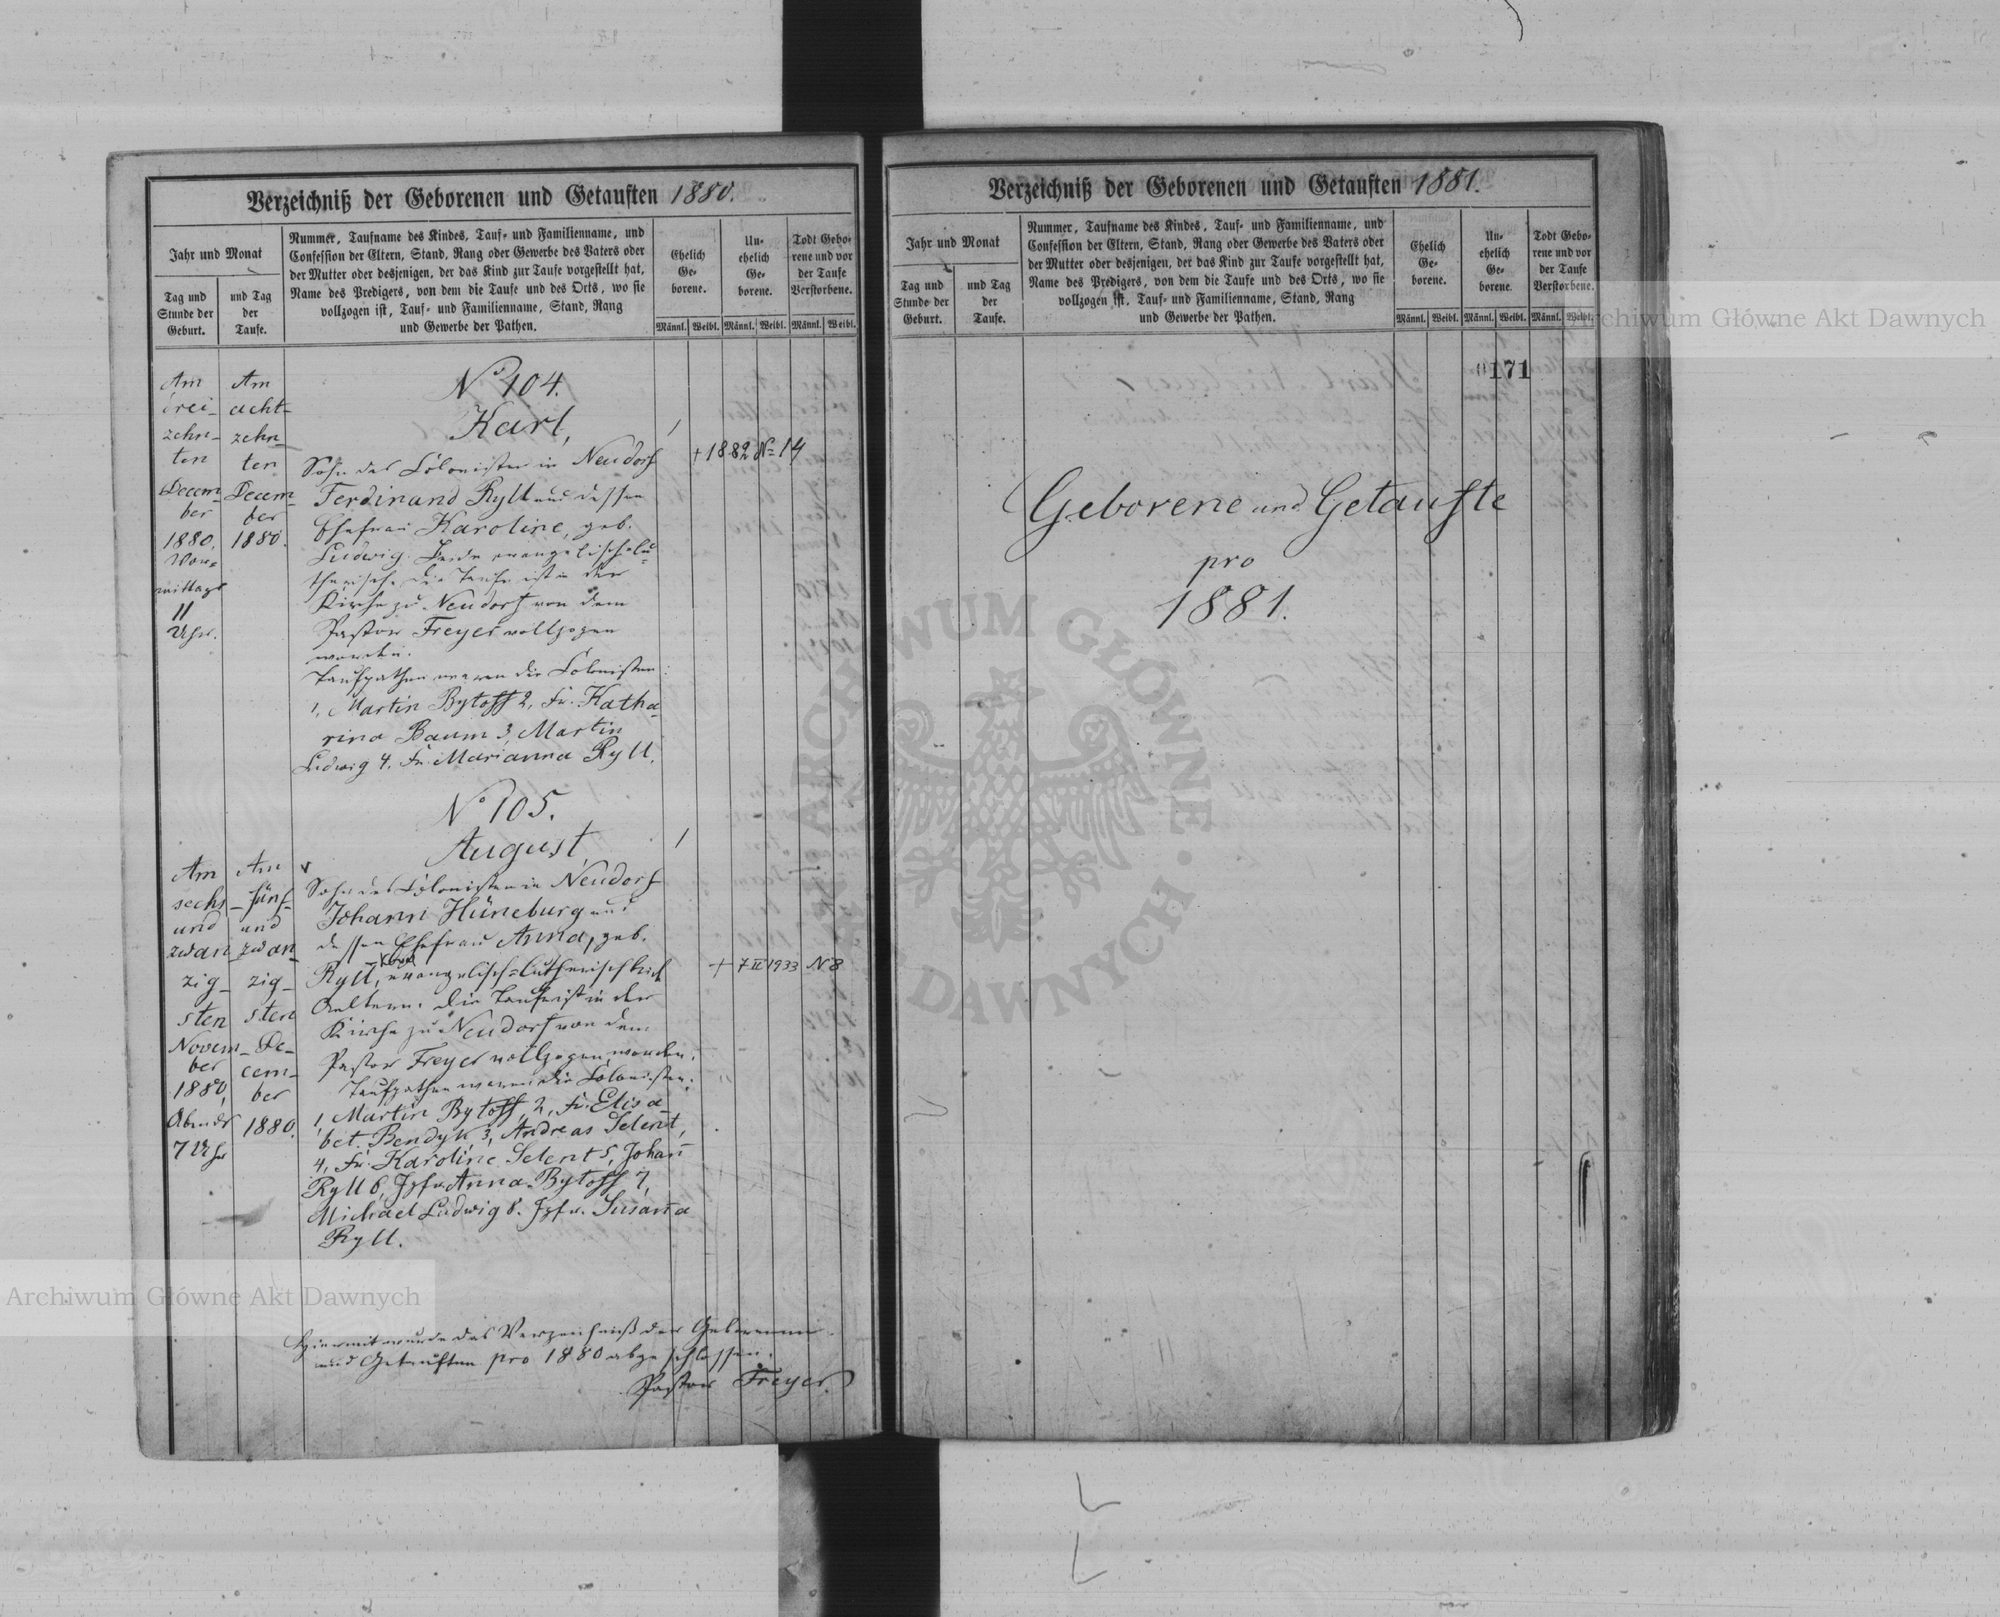 Verzeichniß der Geborenen und Getauften 1880.
Jahr und Monat
Tag und
Stunde der
Geburt.
und Tag
der
Taufe.
Nummer, Taufname des Kindes, Tauf- und Familienname, und
Confession der Eltern, Stand, Rang oder Gewerbe des Vaters oder
der Mutter oder desjenigen, der das Kind zur Taufe vorgestellt hat,
Name des Predigers, von dem die Taufe und des Orts, wo sie
vollzogen ist, Tauf- und Familienname, Stand, Rang
und Gewerbe der Pathen.
Ehelich
Ge-
borene.
Un-
ehelich
Ge-
borene.
Todt Gebo-
rene und vor
der Taufe
Verstorbene.
Männl. Weibl. Männl. Weibl. Männl. Weibl.
Am
drei-
zehn-
ten
Decem-
ber
1880,
Vor-
mittags
11
Uhr.
Am
acht-
zehn-
ten
Decem-
ber
1880.
No 104.
Karl,
Sohn des Colonisten in Neudorf
Ferdinand Ryll und dessen
Ehefrau Karoline, geb.
Ludwig. Beide evangelisch-lu-
therisch. Die Taufe ist in der
Kirche zu Neudorf von dem
Pastor Freyer vollzogen
worden.
Taufpathen waren die Colonisten:
1, Martin Bytoff 2, Fr. Katha-
rina Baum 3, Martin
Ludwig 4, Fr. Marianna Ryll.
1
+ 1882 No 14
Am
sechs-
und
zwan-
zig-
sten
Novem-
ber
1880,
Abends
7 Uhr
Am
fünf-
und
zwan-
zig-
sten
De-
cem-
ber
1880.
No 105.
August,
Sohn des Colonisten in Neudorf
Johann Hüneburg und
dessen Ehefrau Anna, geb.
Ryll, evangelisch-lutherischer
Aeltern. Die Taufe ist in der
Kirche zu Neudorf von dem
Pastor Freyer vollzogen worden.
Taufpathen waren die Colonisten:
1, Martin Bytoff, 2, Fr. Elisa-
bet. Bendyk 3, Andreas Selent,
4, Fr. Karoline Selent 5, Johañ
Ryll 6, Jgfr. Anna Bytoff 7,
Michael Ludwig 8. Jgfr. Susaña
Ryll.
1
+ 7 II 1933 N 8
Hiermit wurde das Verzeichniß der Geborenen
und Getauften pro 1880 abgeschlossen.
Pastor Freyer.
Verzeichniß der Geborenen und Getauften 1881.
Jahr und Monat
Tag und
Stunde der
Geburt.
und Tag
der
Taufe.
Nummer, Taufname des Kindes, Tauf- und Familienname, und
Confession der Eltern, Stand, Rang oder Gewerbe des Vaters oder
der Mutter oder desjenigen, der das Kind zur Taufe vorgestellt hat,
Name des Predigers, von dem die Taufe und des Orts, wo sie
vollzogen ist, Tauf- und Familienname, Stand, Rang
und Gewerbe der Pathen.
Ehelich
Ge-
borene.
Un-
ehelich
Ge-
borene.
Todt Gebo-
rene und vor
der Taufe
Verstorbene.
Männl. Weibl. Männl. Weibl. Männl. Weibl.
0171
Geborene und Getaufte
pro
1881.
Archiwum Główne Akt Dawnych
ARCHIWUM GŁÓWNE AKT DAWNYCH
Archiwum Główne Akt Dawnych